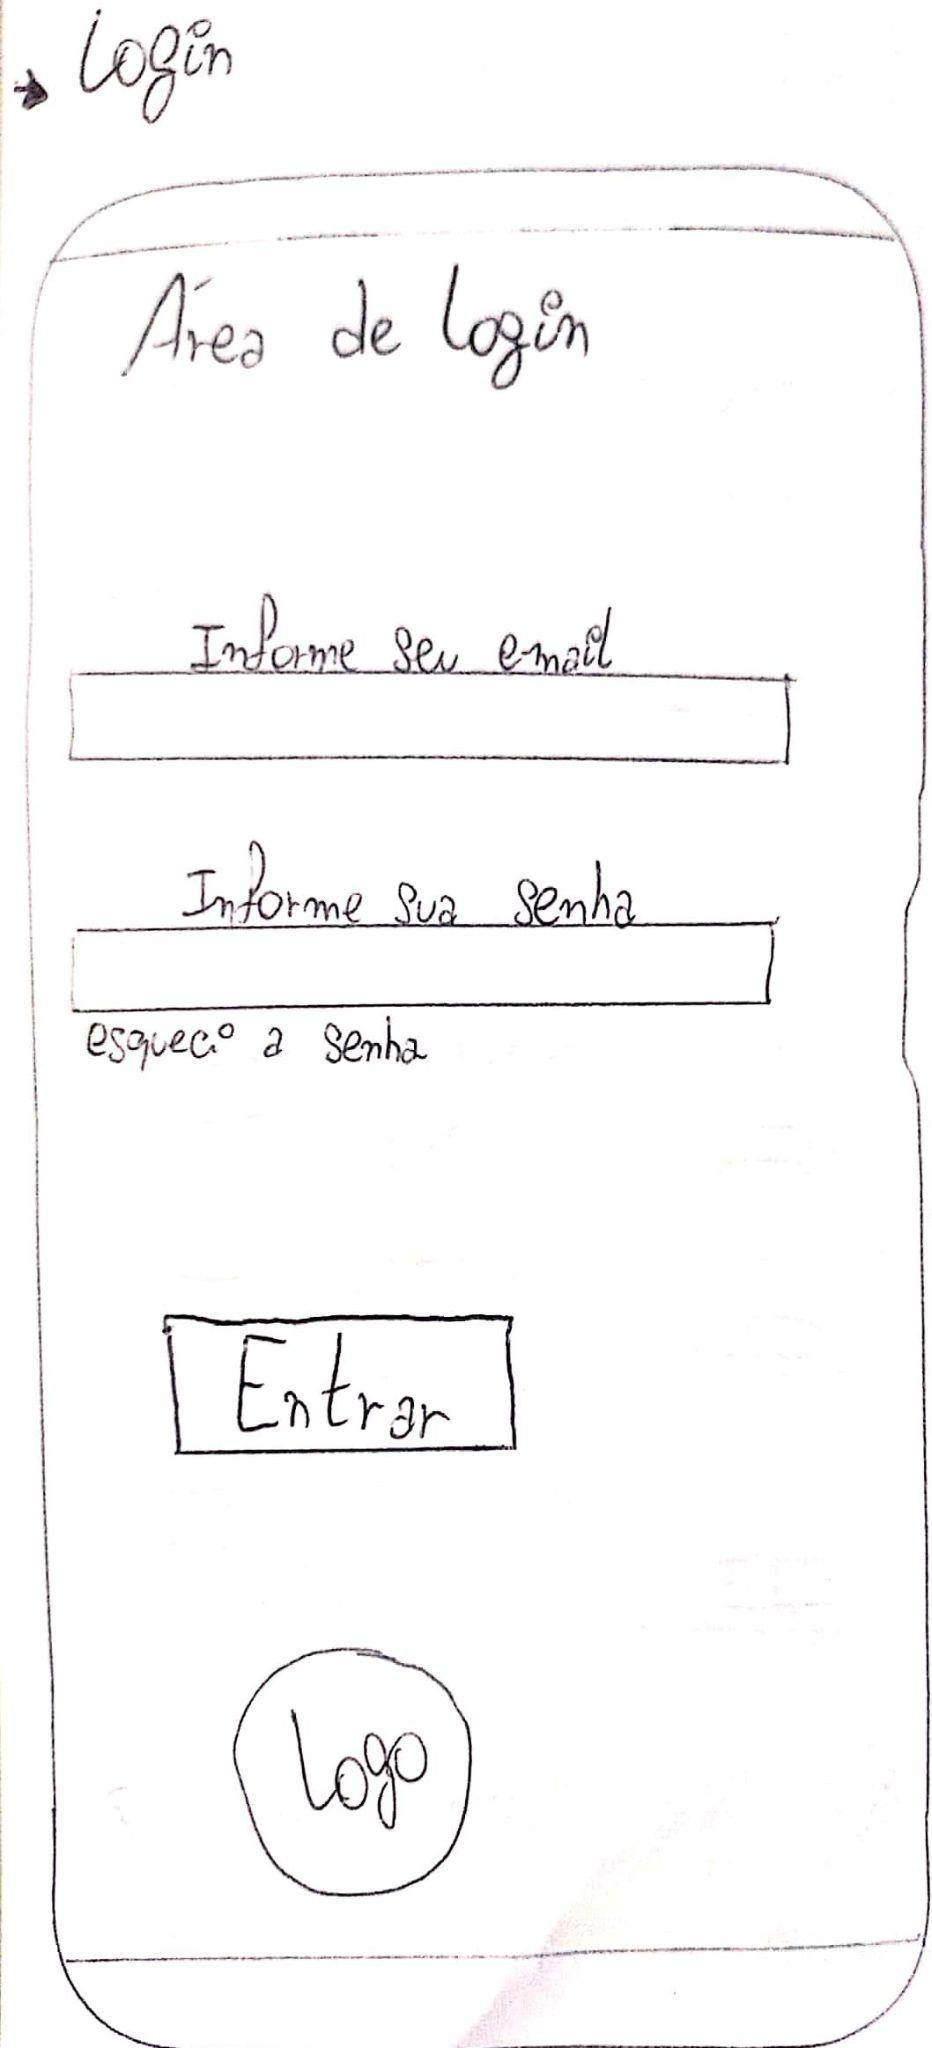 Login
Área de login
Informe seu email
Informe sua senha
esqueci a senha
Entrar
Logo